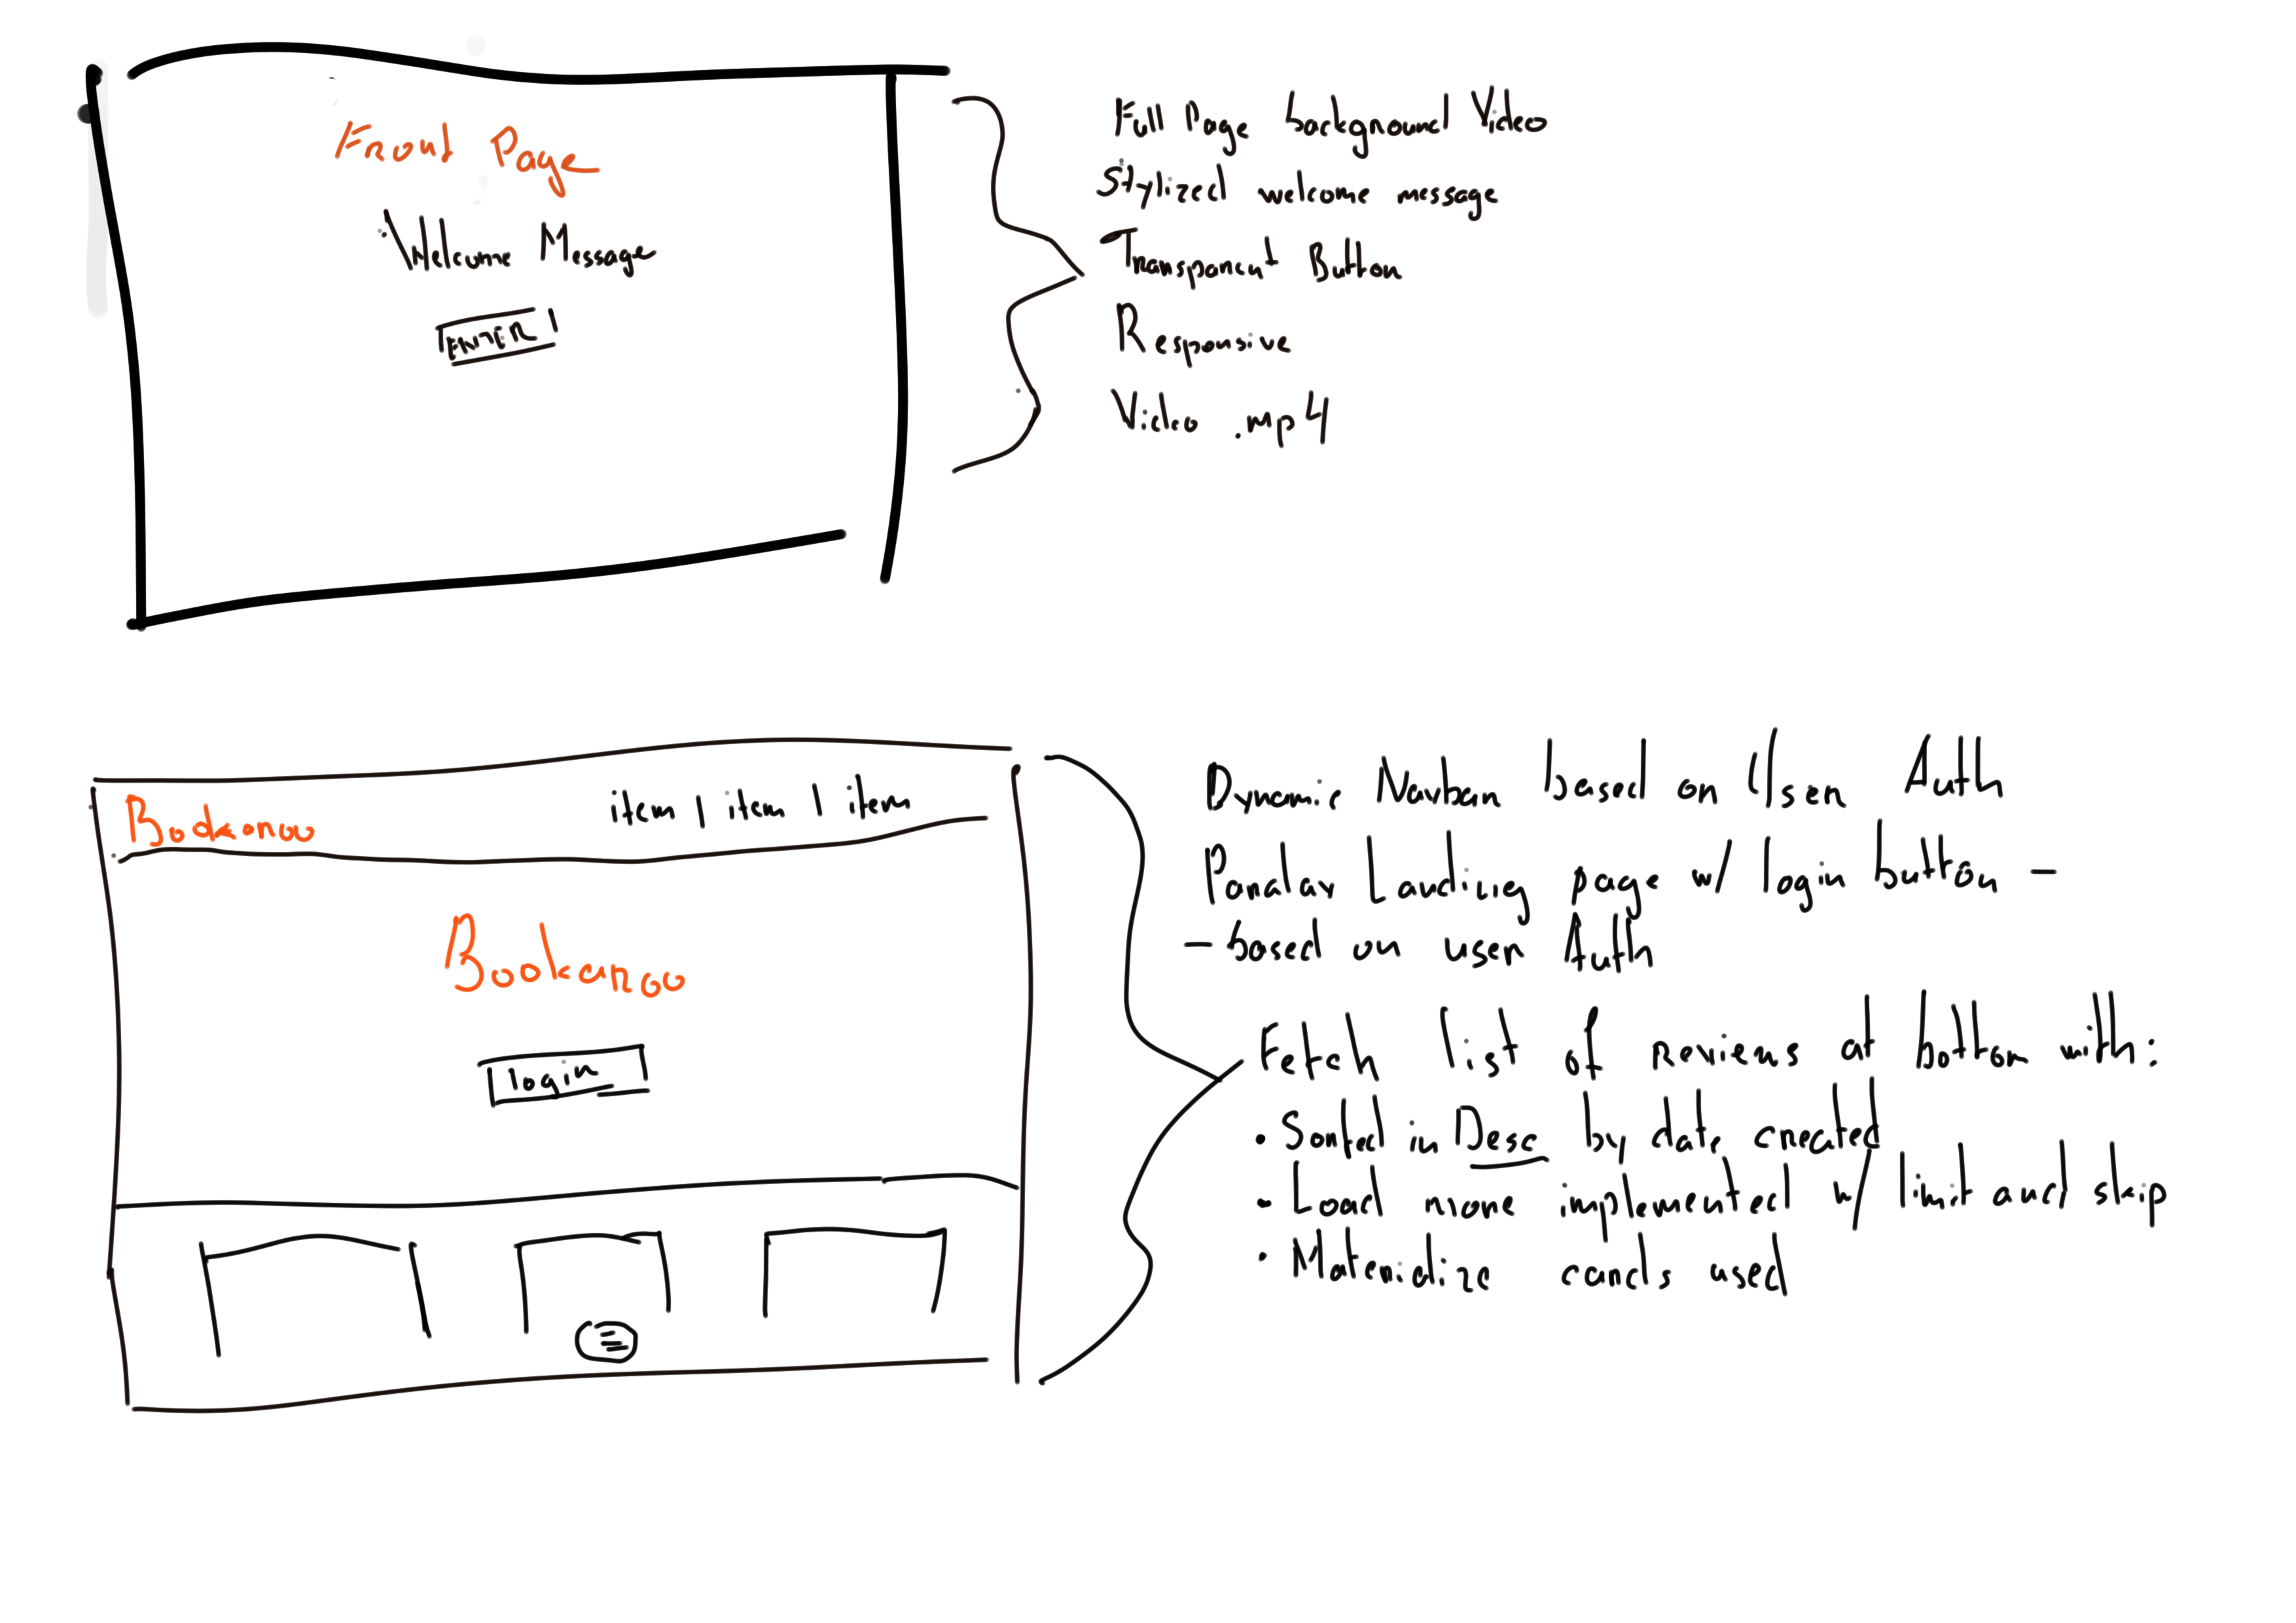 Front Page
Welcome Message
ENTER
Full Page background Video
Stylized welcome message
Transparent Button
Responsive
Video .mp4
Bookaroo
item | item | item
Bookaroo
login
Dynamic Navbar based on User Auth
Paralax Landing page w/ login button -
- based on user Auth
Fetch list of reviews at bottom with:
• Sorted in Desc by date created
• Load more implemented w/ limit and skip
• Materialize cards used